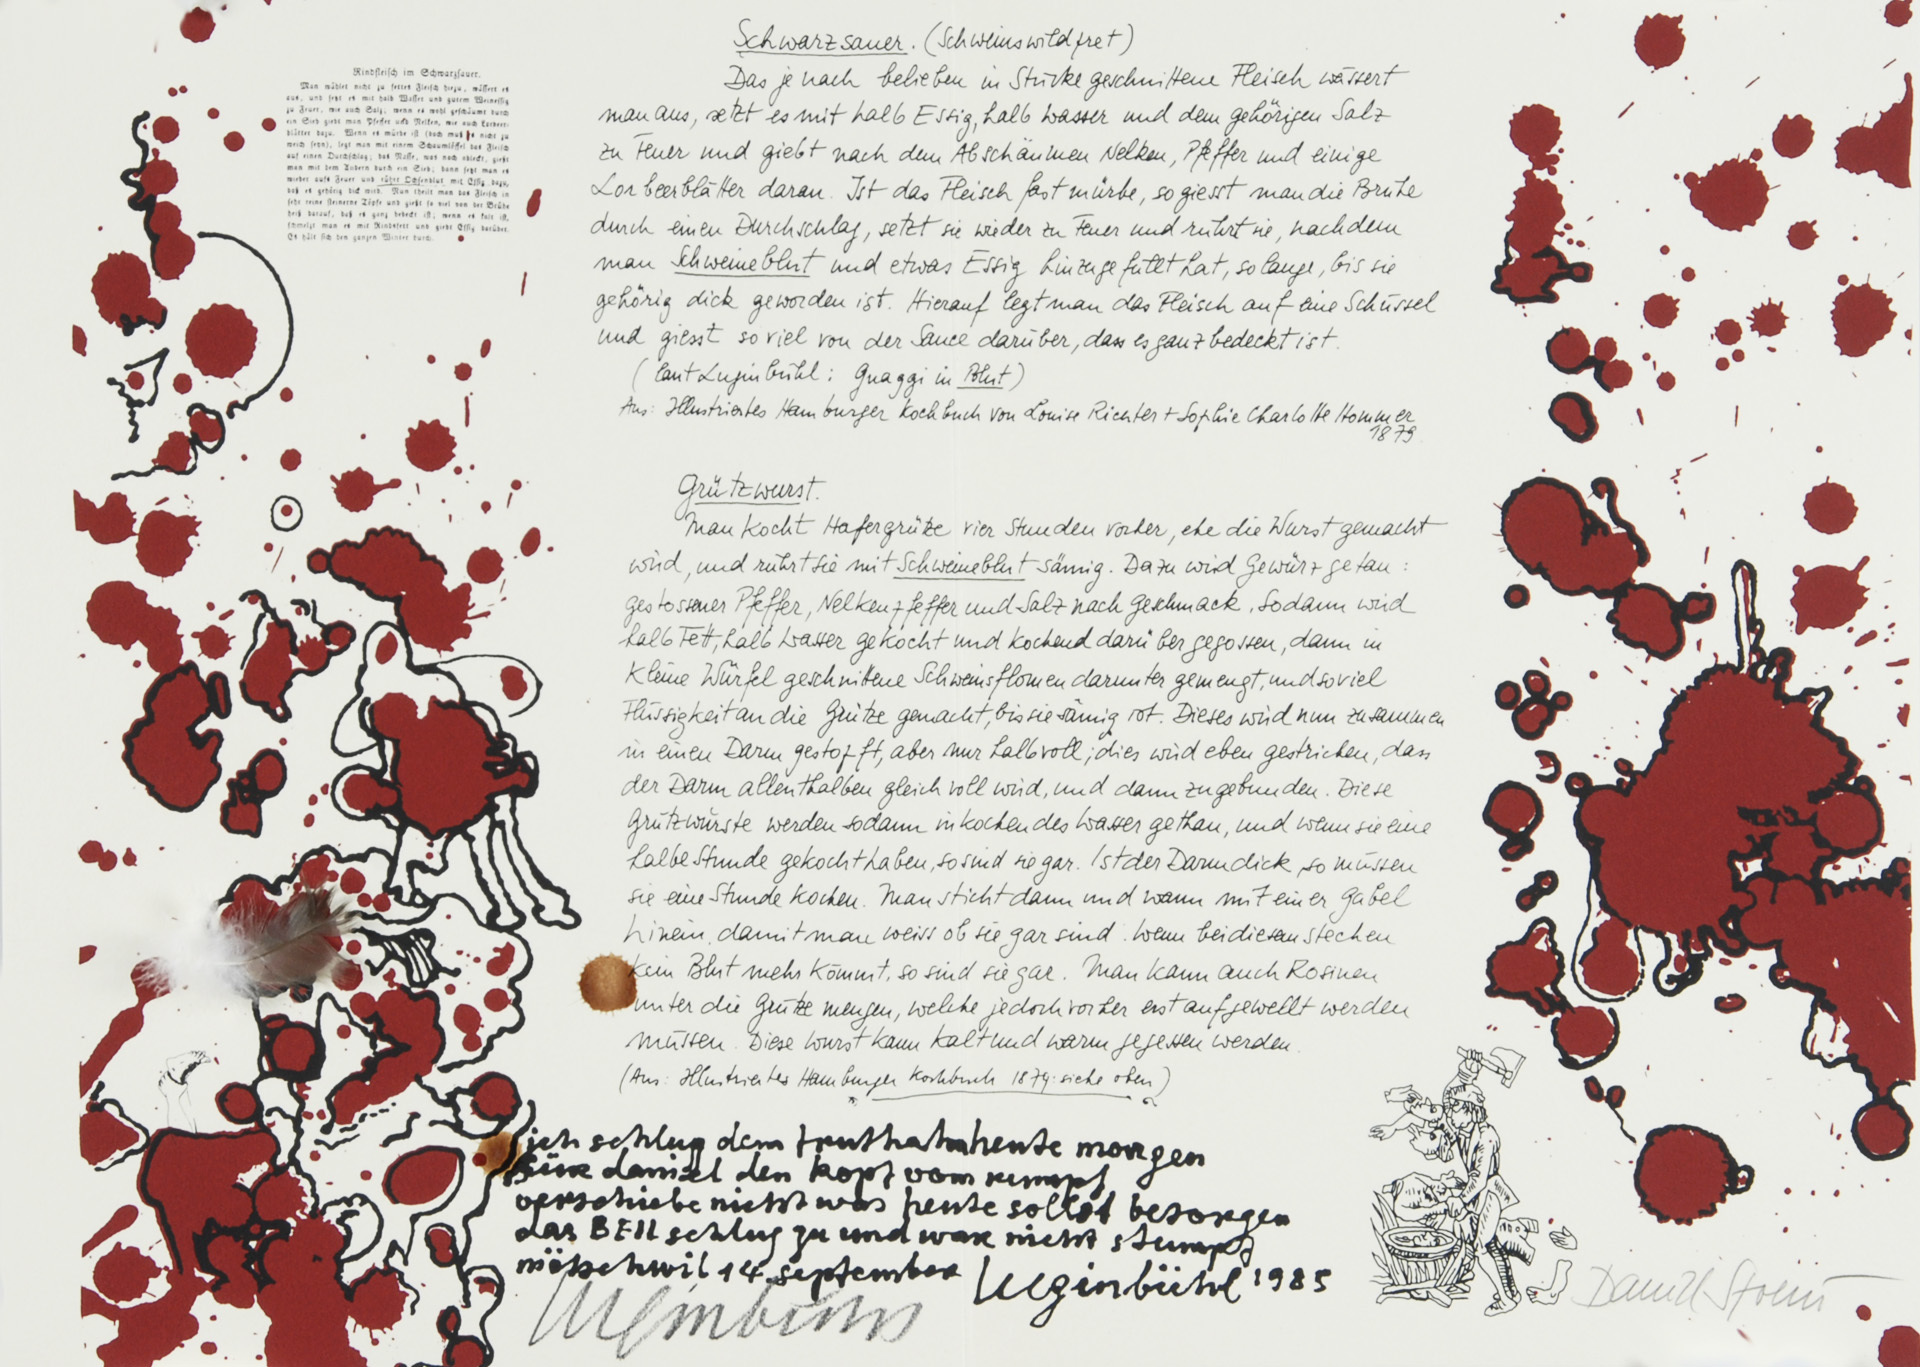 Rindfleisch im Schwarzsauer.
Man wählet nicht zu fettes Fleisch hiezu, wässert es
aus, und setzt es mit halb Wasser und gutem Weinessig
zu Feuer, wie auch Salz; wenn es wohl geschäumt durch
ein Sieb giebt man Pfeffer und Nelken, wie auch Lorbeer-
blätter dazu. Wenn es mürbe ist (doch muß es nicht zu
weich seyn), legt man mit einem Schaumlöffel das Fleisch
auf einen Durchschlag; das Nasse, was noch abläuft, gießt
man mit dem Andern durch ein Sieb; dann setzt man es
wieder aufs Feuer und rührt Ochsenblut mit Essig dazu,
daß es gehörig dick wird. Man theilt man das Fleisch in
sehr reine steinerne Töpfe und gießt so viel von der Brühe
heiß darauf, daß es ganz bedeckt ist; wenn es kalt ist,
schmelzt man es mit Rindsfett und giebt Essig darüber.
Es hält sich den ganzen Winter durch.
Schwarzsauer. (Schweinswildpret)
Das je nach belieben in Stücke geschnittene Fleisch wässert
man aus, setzt es mit halb Essig, halb Wasser und dem gehörigen Salz
zu Feuer und giebt nach dem Abschäumen Nelken, Pfeffer und einige
Lorbeerblätter daran. Ist das Fleisch fast mürbe, so giesst man die Brühe
durch einen Durchschlag, setzt sie wieder zu Feuer und rührt sie, nachdem
man Schweineblut und etwas Essig hinzugefüllt hat, so lange, bis sie
gehörig dick geworden ist. Hierauf legt man das Fleisch auf eine Schüssel
und giesst so viel von der Sauce darüber, dass es ganz bedeckt ist.
(laut Luginbühl: Gnaggi in Blut)
Aus: Illustriertes Hamburger Kochbuch von Louise Richter + Sophie Charlotte Hommer
1879.
Grützwurst.
Man kocht Hafergrütze vier Stunden vorher, ehe die Wurst gemacht
wird, und rührt sie mit Schweineblut sämig. Dazu wird Gewürz getan:
gestossener Pfeffer, Nelkenpfeffer und Salz nach Geschmack. Sodann wird
halb Fett, halb Wasser gekocht und kochend darüber gegossen, dann in
kleine Würfel geschnittene Schweinsflomen darunter gemengt, und soviel
Flüssigkeit an die Grütze gemacht, bis sie sämig ist. Dieses wird nun zusammen
in einen Darm gestopft, aber nur halbvoll; dies wird eben gestrichen, dass
der Darm allenthalben gleich voll wird, und dann zugebunden. Diese
Grützwürste werden sodann in kochendes Wasser gethan, und wenn sie eine
halbe Stunde gekocht haben, so sind sie gar. Ist der Darm dick, so müssen
sie eine Stunde kochen. Man sticht dann und wann mit einer Gabel
hinein, damit man weiss ob sie gar sind. Wenn bei diesem stechen
kein Blut mehr kömmt, so sind sie gar. Man kann auch Rosinen
unter die Grütze mengen, welche jedoch vorher erst aufgewellt werden
müssen. Diese Wurst kann kalt und warm gegessen werden.
(Aus: Illustriertes Hamburger Kochbuch 1879: siehe oben)
ich schlug dem truthahn heute morgen
für daniel den kopf vom rumpf
verschiebe nicht was heute sollst besorgen
das BEIL schlug zu und war nicht stumpf
mötschwil 14. september Luginbühl 1985
Luginbühl
Daniel Spoerri